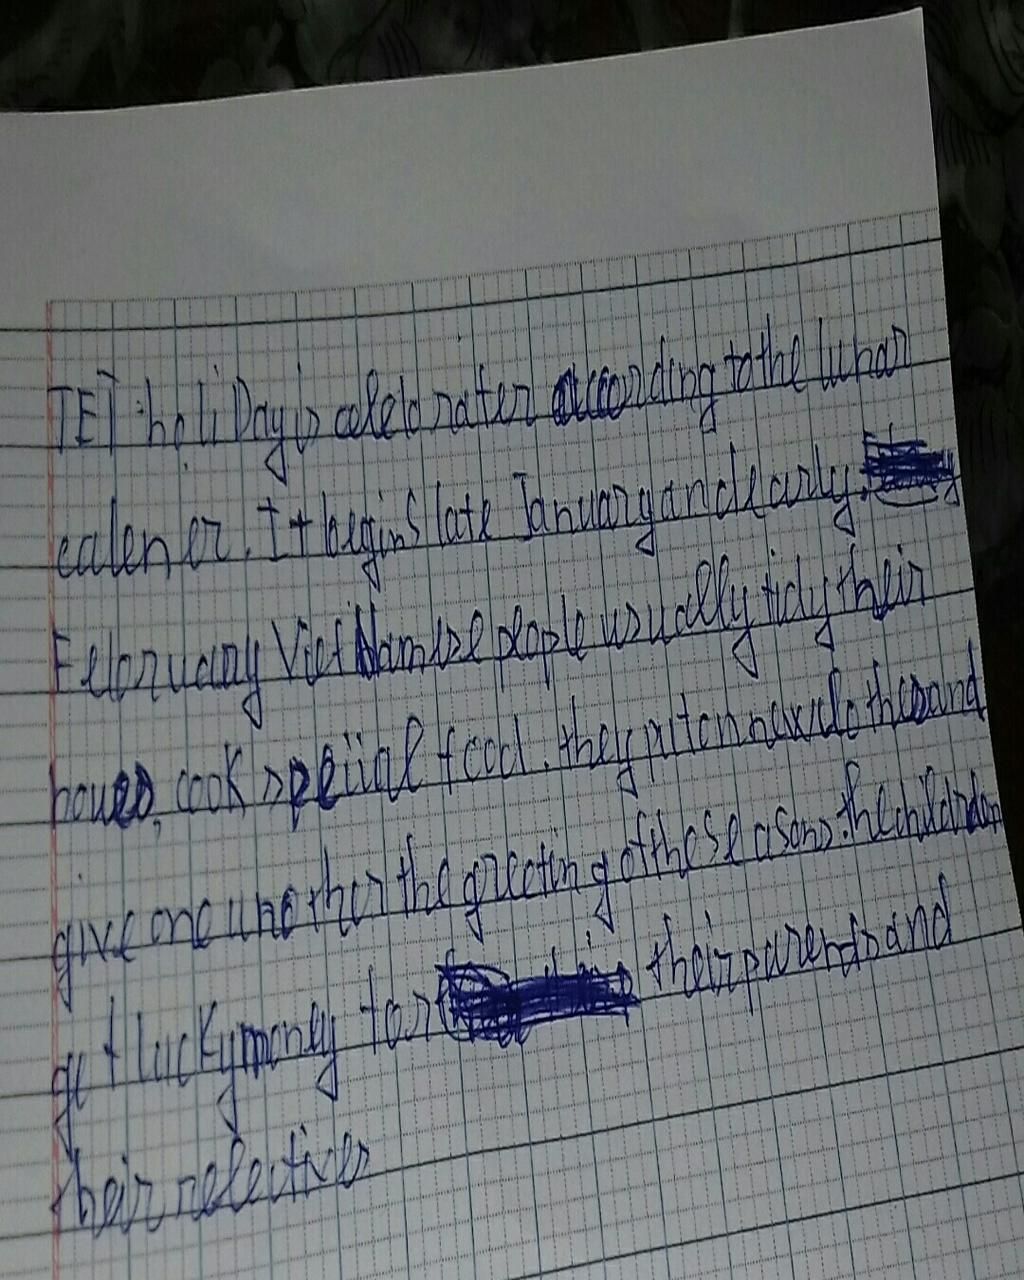 TET holiDay is celebrater according to the lunar
calener. It begins late January and early
February VietNamese people usually tidy their
houses, cook speciial food. they put on new clothes and
give one another the greeting of these asons. the children
get lucky money for their parents and
their relectives